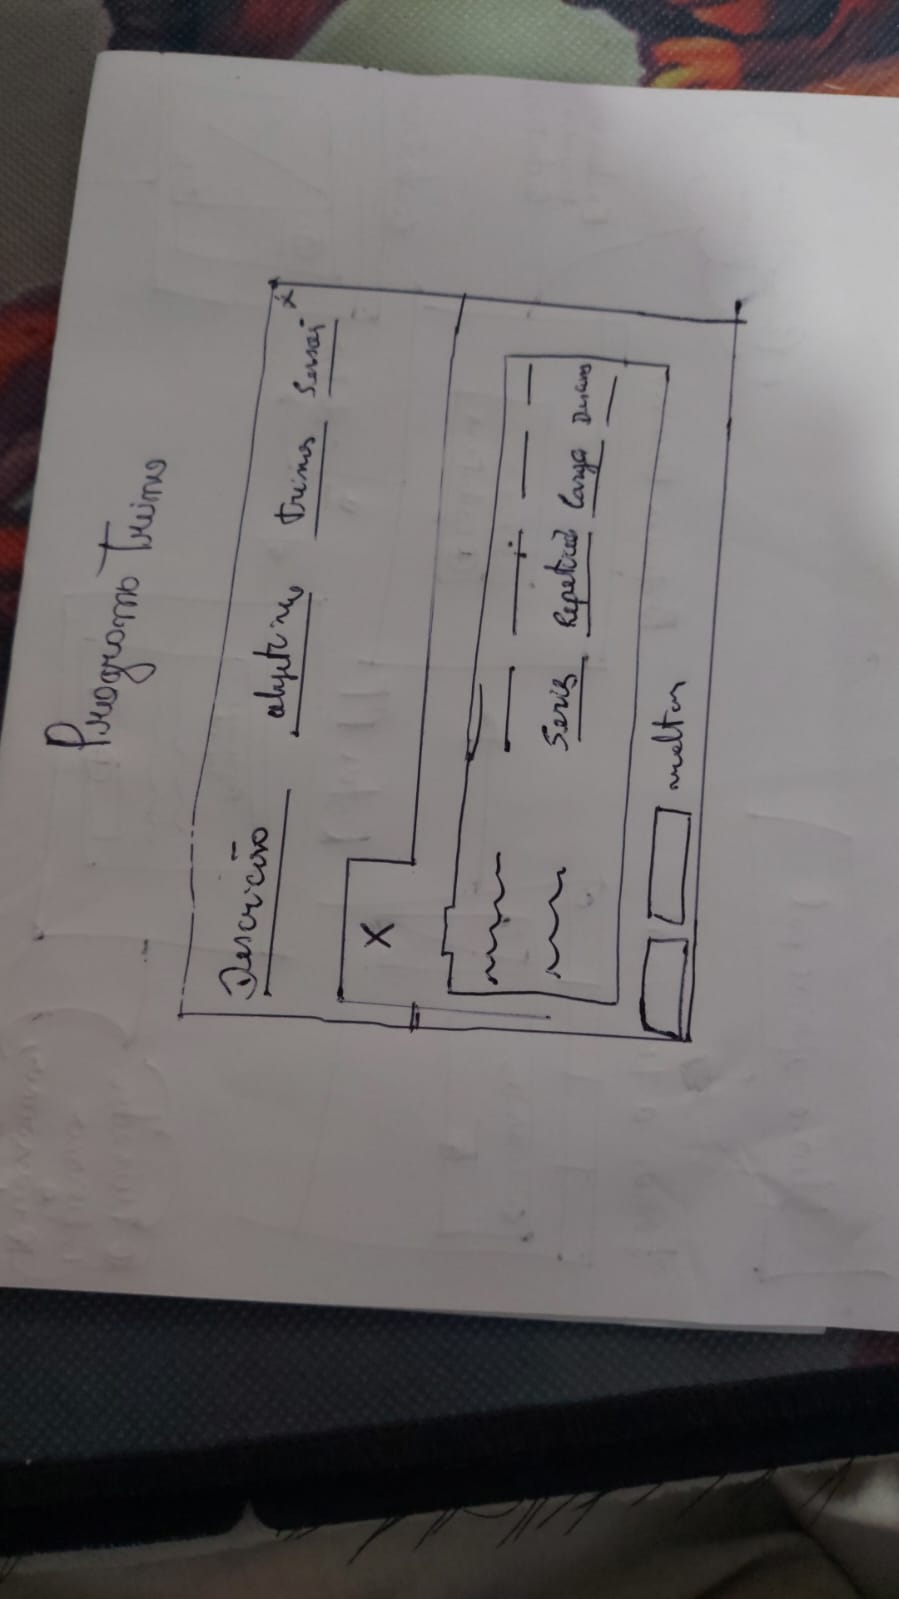 Programa Treino
Descrição objetivo treinos Sessão
x
X
Series Repetico Carga Descans
voltar